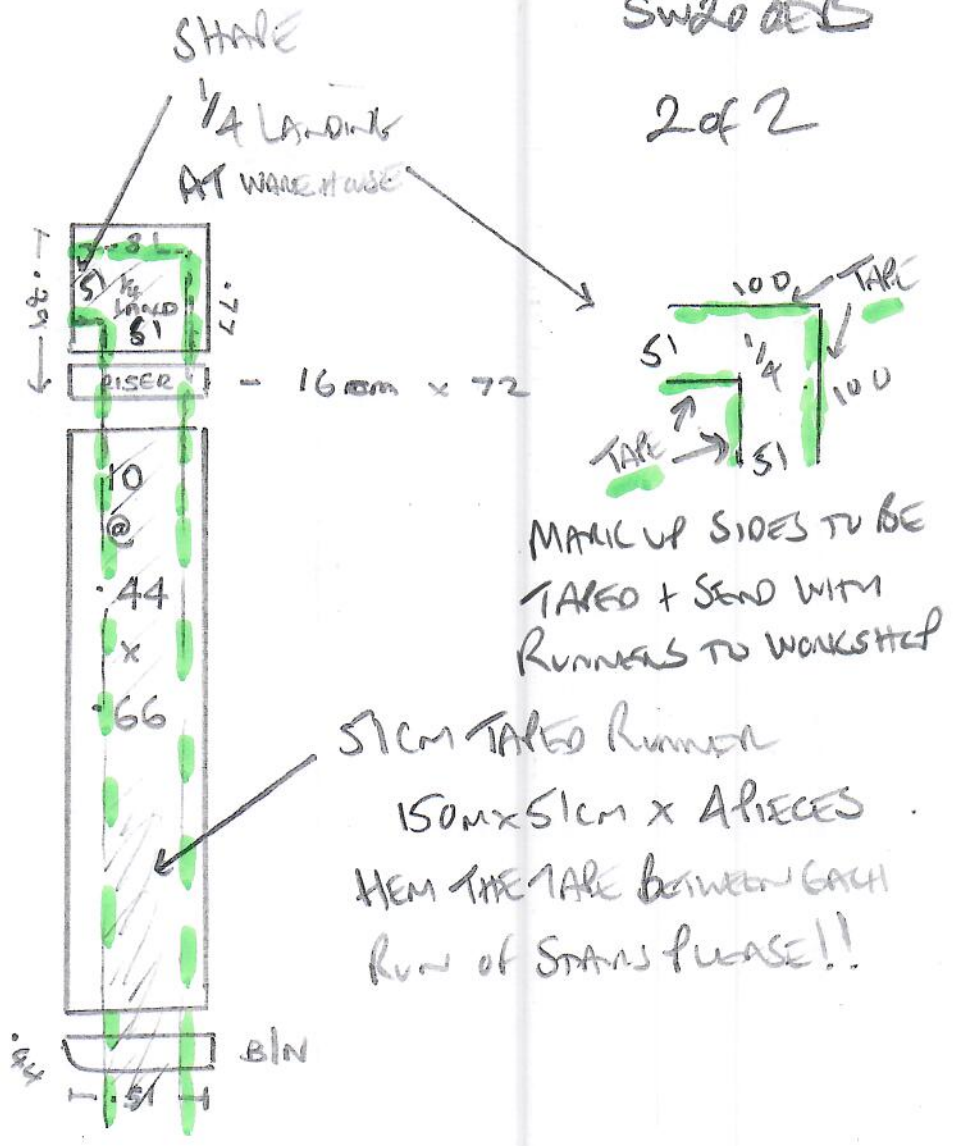 SHAPE
1/4 LANDING
AT WAREHOUSE
SW20
2 of 2
81
51 1/4
LAND
51
.77
RISER - 16mm x 72
10
@
.44
x
.66
.44
B/N
51
TAPE
100
51
1/4
100
TAPE
51
MARK UP SIDES TO BE
TAPED + SEND WITH
RUNNERS TO WORKSHOP
51CM TAPED RUNNER
150M x 51CM x 4 PIECES
HEM THE TAPE BETWEEN EACH
RUN OF STAIRS PLEASE!!